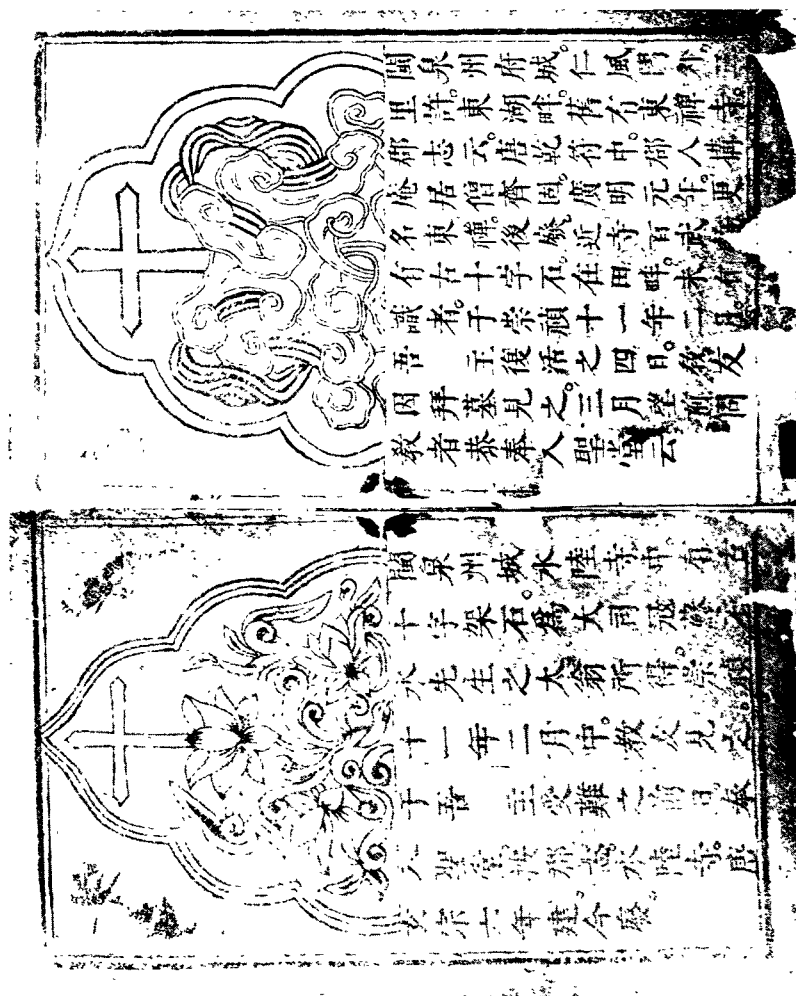 閩泉州府城。仁風門外。
里許。東湖畔。舊有東禪寺。
郡志云。唐乾符中。郡人搆
庵居僧齊固。廣明元年。更
名東禪。後燬。近寺百武。
有古十字石。在田畔。未有
識者。于崇禎十一年二月。
吾 主復活之四日。教友
因拜墓見之。三月望前同
教者恭奉入聖堂云
閩泉州城。水陸寺中。有古
十字架石。爲大司冦蘇石
水先生之太翁所得。崇禎
十一年二月中。教友見之
于吾 主受難之前日。奉
入聖堂按郡誌。水陸寺。唐
玄宗六年建。今廢。